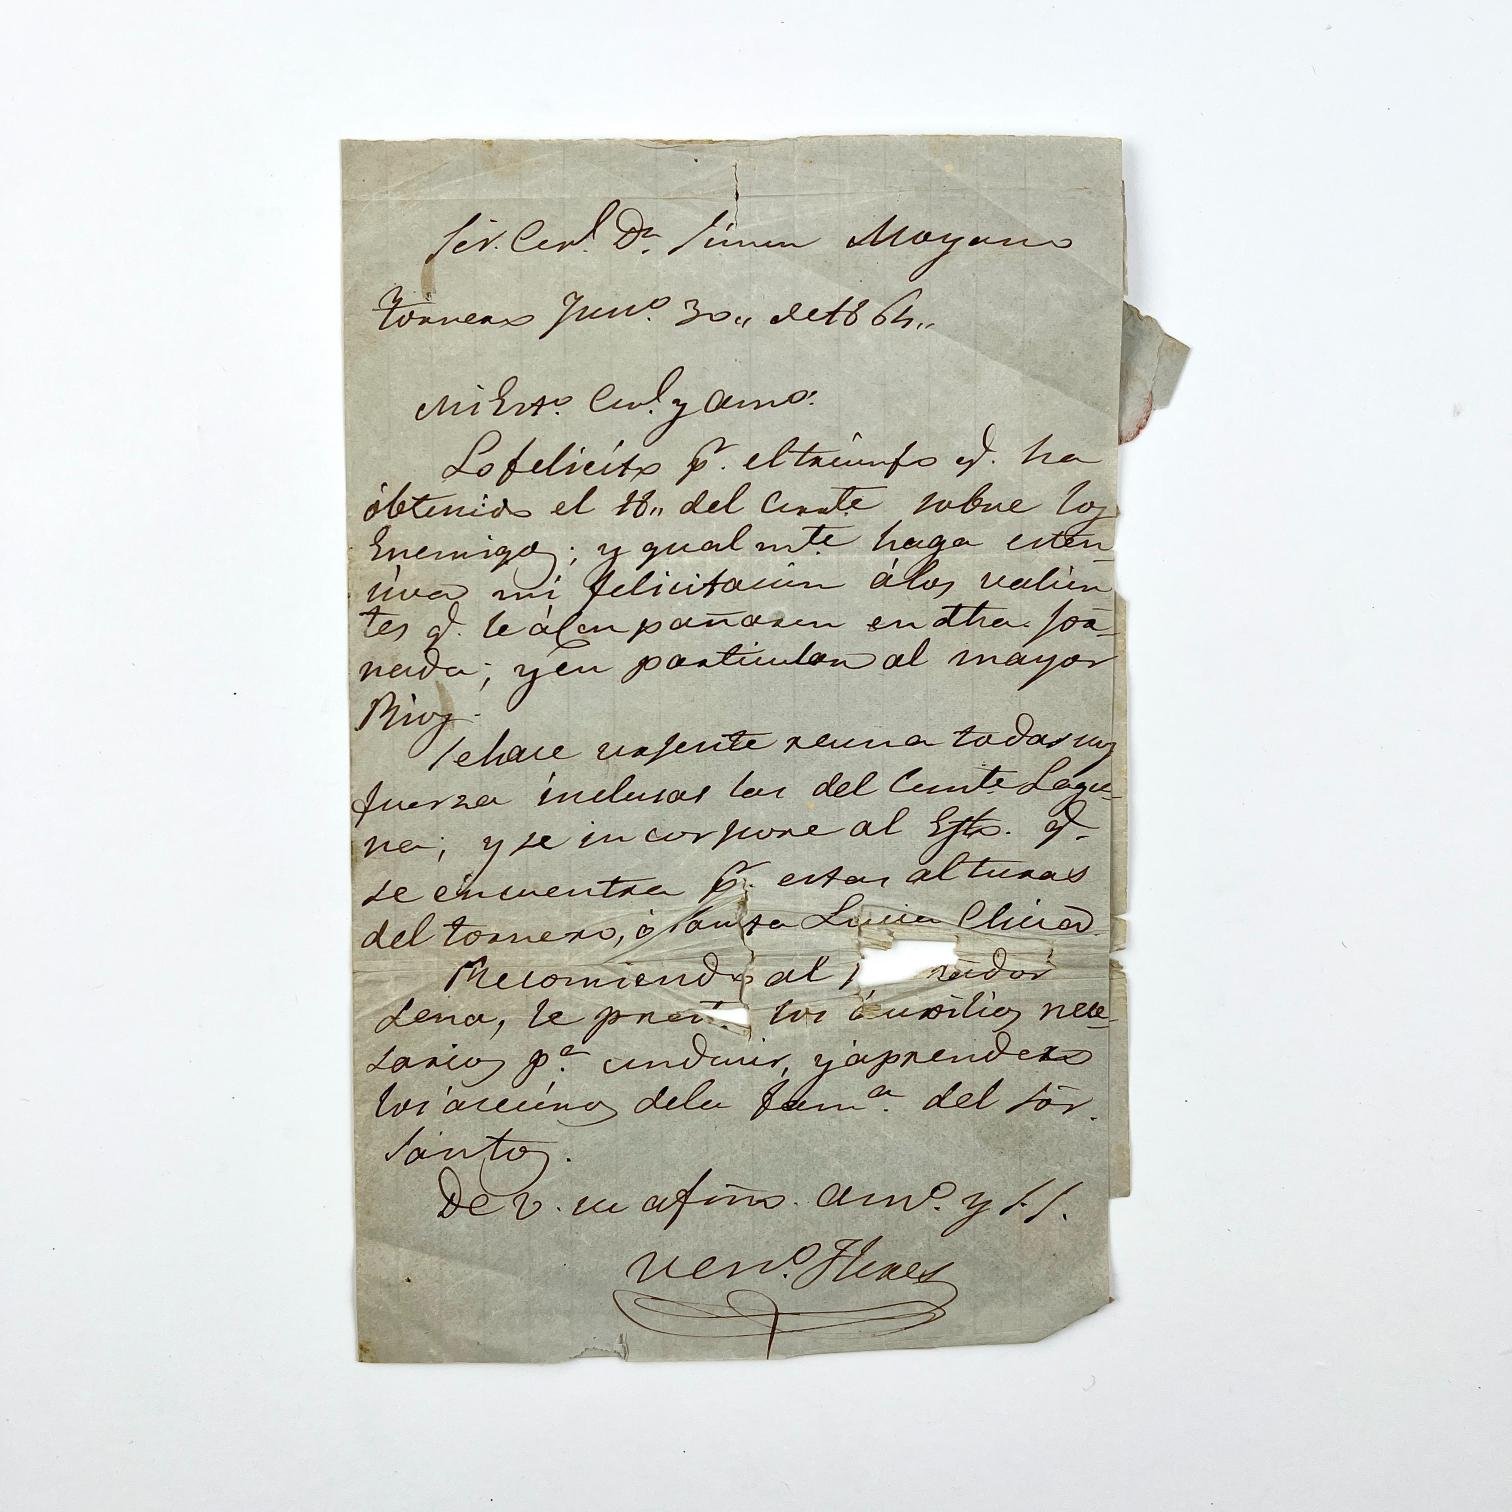 Sōr. Corl. Dn. Simon Moyano
Tornero Jun.o 30,, de 1864,,
Mi Esto. Corl. y amo.
Lo felicito pr. el triunfo q. ha
óbtenido el 18,, del Corrte. sobre los
Enemigos; y gualmte. haga esten
siva mi felicitacion álos valien
tes q. le álcon pañaron en dha. Jor-
nada; yén particular al mayor
Rios.
Sehace urjente reuna todas sus
fuerza inclusas las del Comte. Lagu-
na; y se in corpore al Ejto. q.
se éncuentra pr. estas alturas
del tornero, ó Santa Lucia Chico.
Recomiendo al
Sena, le los áuxilios nece-
sarios pa. conducir, yáprenderlo
los de la fama. del Sōr.
Santos.
De V. su afmō. amo. y S.S.
Veno. Flores